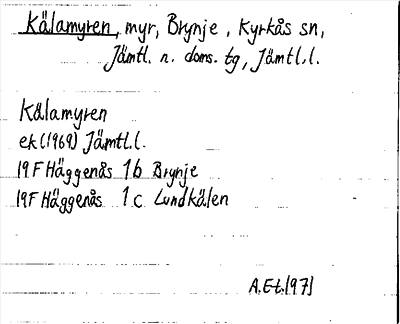 Kälamyren, myr, Brynje, Kyrkås sn,
Jämtl. n. doms. tg, Jämtl.l.
Kälamyren
ek (1969) Jämtl.l.
19F Häggenås 1b Brynje
19F Häggenås 1c Lundkälen
A.Et.1971